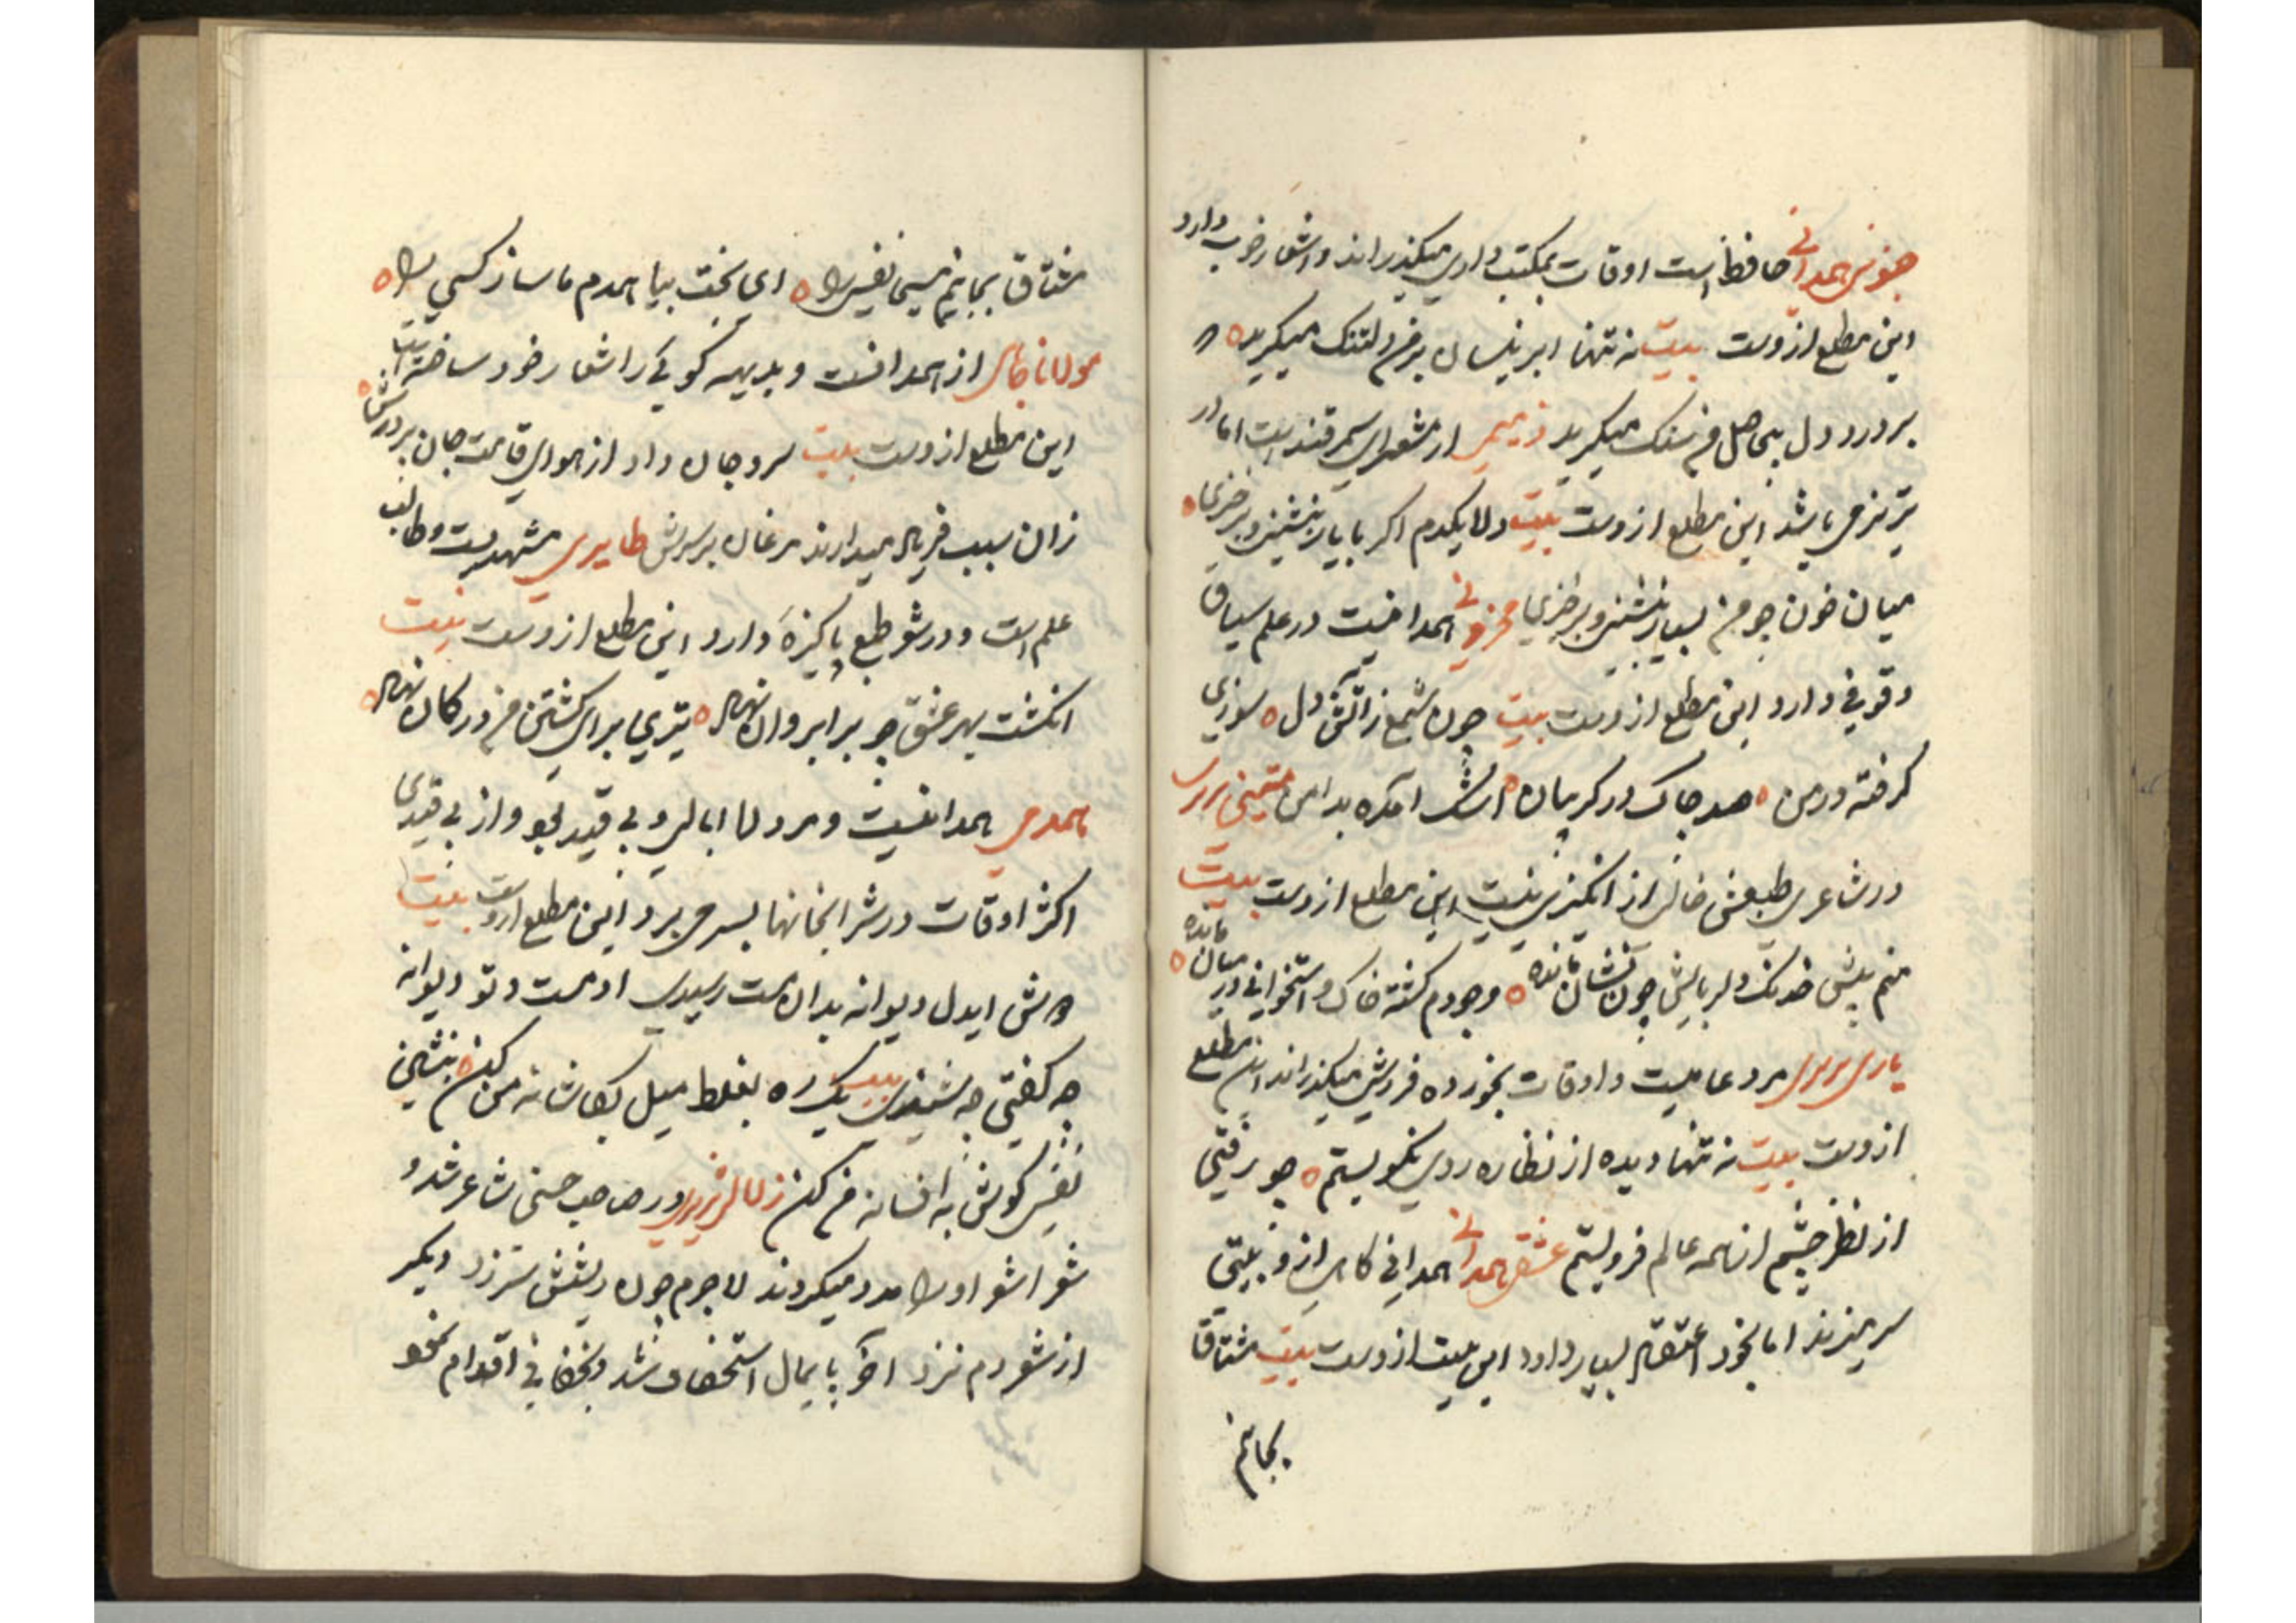 حافظ است اوقات بمکتب داری میگذراند و اشعار خوب دارد
این مطلع ازوست بیت نه تنها ابر نیسان بر من دلتنک میکرید
بر درد دل بیحاصل من سنک میکرید از شعرای سمرقند است اما در
تبریز می باشد این مطلع ازوست بیت دلا یکدم اکر با یار بنشینی و برخیزی
میان خون چو من بسیار بنشینی و برخیزی محزونی همدانیست در علم سیاق
وقوفی دارد این مطلع ازوست بیت چون شمع ز آتش دل سوزی
کرفته در من صد چاک در کریبان اشک آمده بدامن
در شاعری طبعش خالی از انکیزی نیست این مطلع ازوست بیت
منم پیش خدنک دلربایش چون نشان مانده وجودم کشته خاک و استخوانی در میان مانده
یاری مرد عامیست و اوقات بخورده فروشی میکذراند این مطلع
ازوست بیت نه تنها دیده از نظاره روی نکو بستم چو رفتی
از نظر چشم از همه عالم فرو بستم عشقی همدانی همدانی کاهی ازو بیتی
سر میزند اما بخود اعتقاد بسیار دارد این بیت ازوست بیت مشتاق
بجانیم
مشتاق بجانیم مسیحا نفسی را ای بخت بیا همدم ما ساز کسی را
مولانا از همدانست و بدیهه کوئی را شعار خود ساخته است
این مطلع ازوست بیت سرو جان داد از هوای قامت جان پرورش
زان سبب فریاد میدارند مرغان بر سرش طایری مشهدیست و طالب
علم است و در شعر طبع پاکیزه دارد این مطلع ازوست بیت
انکشت بهر عشق چو بر ابروان نهاد تیری برای کشتن من در کمان نهاد
همدمی همدانیست و مرد لا ابالی و بی قید بود و از بی قیدی
اکثر اوقات در شرابخانها بسر می برد این مطلع ازوست بیت
دوش ایدل دیوانه بدان مست رسیدی او مست و تو دیوانه
چه کفتی چه شنیدی بیت یک ره بغلط میل بکاشانه من کن بنشین
نفسی کوش به افسانه من کن زلالی تبریزی در صاحب حسنی شاعر شد و
شعرا شعر او را مدد میکردند لاجرم چون ریشش سر زد دیکر
از شعر دم نزد آخر پایمال استخفاف شد و بخفا فی اقدام نمود